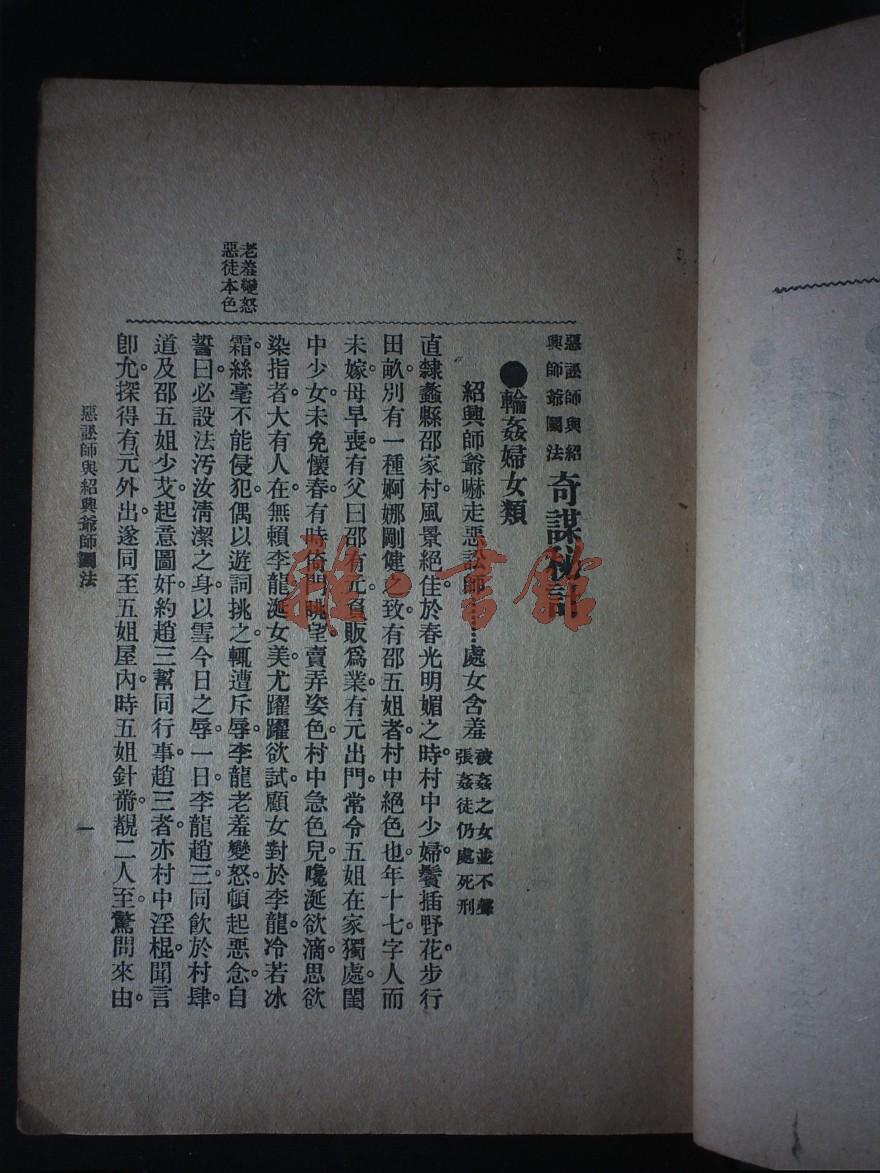 惡訟師與紹
興師爺鬭法
奇謀秘計
●輪姦婦女類
紹興師爺嚇走惡訟師……處女含羞
被姦之女並不聲
張姦徒仍處死刑
直隸蠡縣邵家村風景絕佳於春光明媚之時村中少婦鬢插野花步行
田畝別有一種婀娜剛健之致有邵五姐者村中絕色也年十七字人而
未嫁母早喪有父曰邵有元負販爲業有元出門常令五姐在家獨處閨
中少女未免懷春有時倚門眺望賣弄姿色村中急色兒嚵涎欲滴思欲
染指者大有人在無賴李龍涎女美尤躍躍欲試顧女對於李龍冷若冰
霜絲毫不能侵犯偶以遊詞挑之輒遭斥辱李龍老羞變怒頓起惡念自
誓曰必設法汚汝清潔之身以雪今日之辱一日李龍趙三同飲於村肆
道及邵五姐少艾起意圖奸約趙三幫同行事趙三者亦村中淫棍聞言
卽允探得有元外出遂同至五姐屋內時五姐針黹覩二人至驚問來由
老羞變怒
惡徒本色
惡訟師與紹興爺師鬭法
一
雜·書館